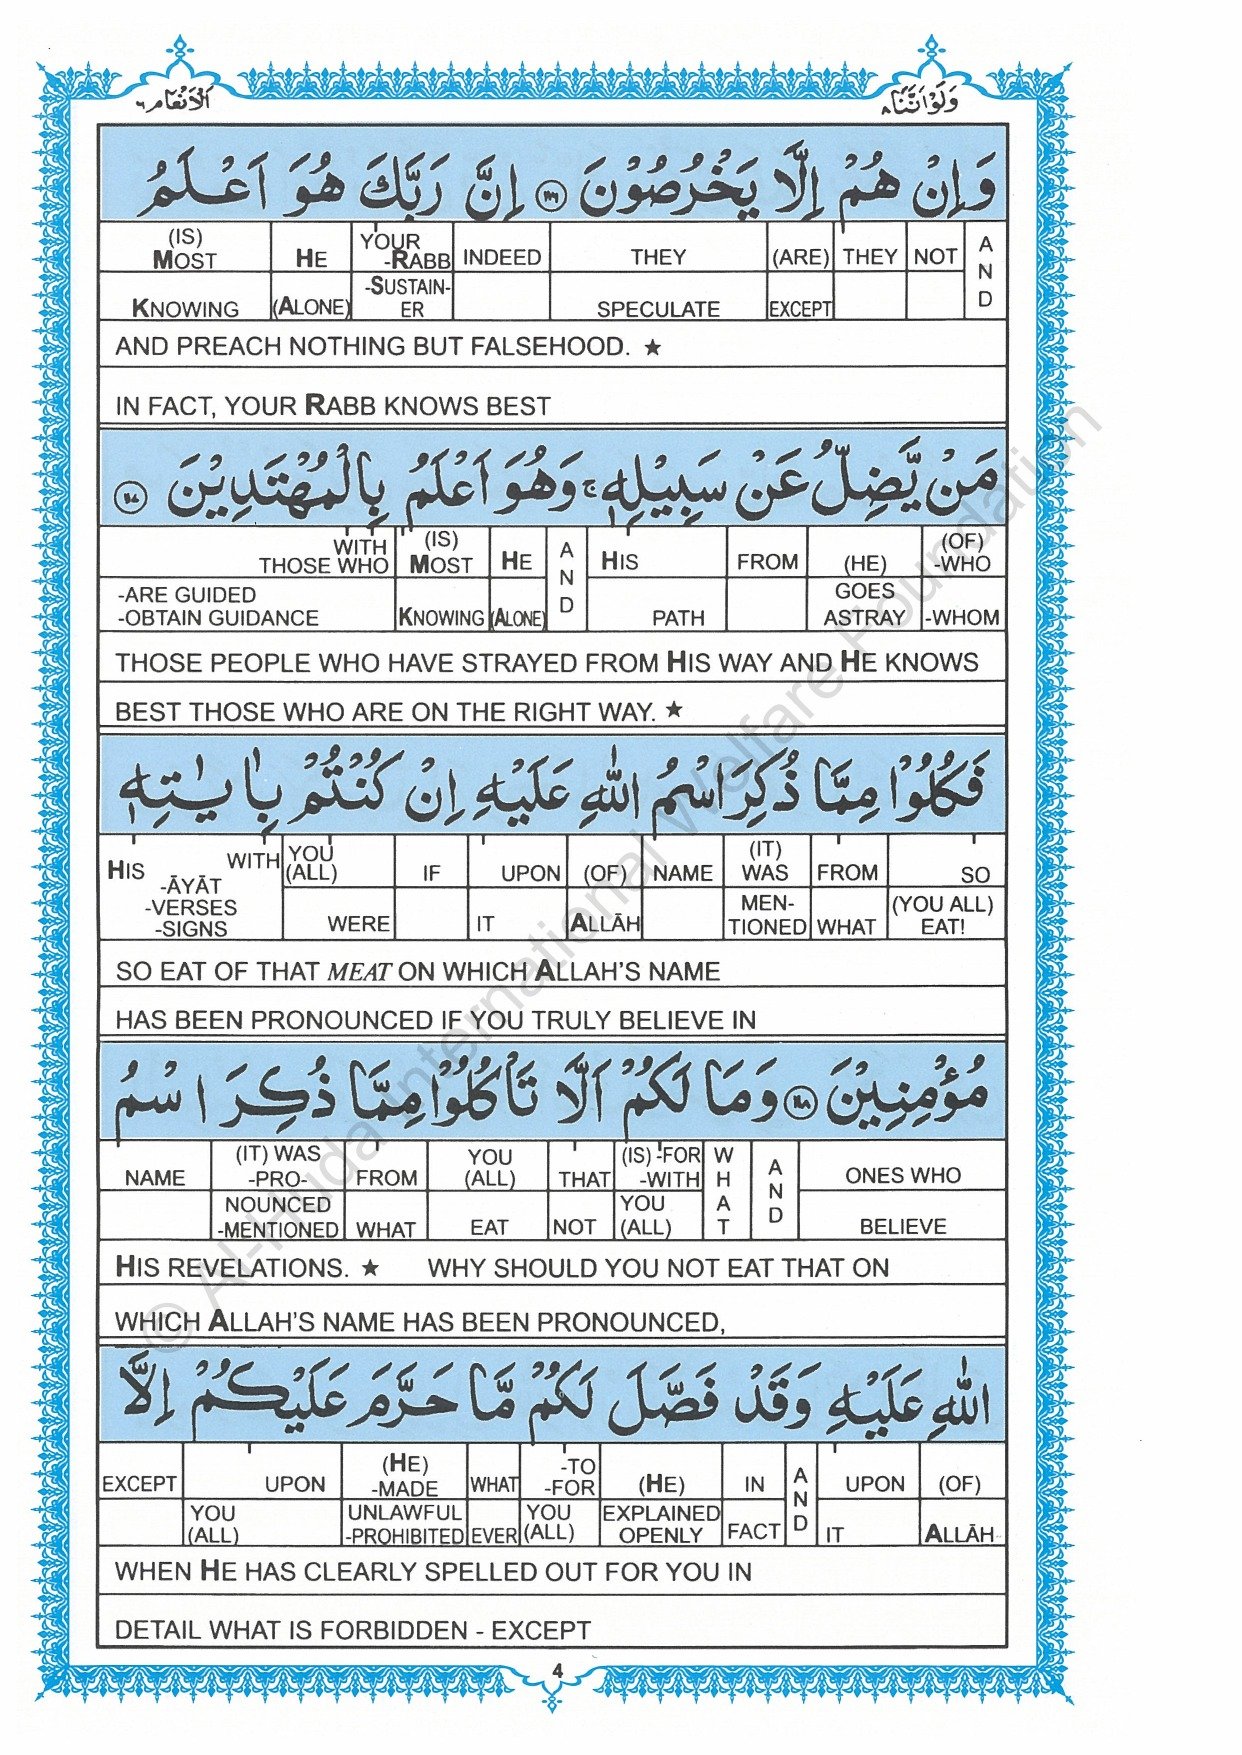 الانعام ٦
ولواننا ٨
وَاِنْ هُمْ اِلَّا يَخْرُصُوْنَ ﴿١١٦﴾ اِنَّ رَبَّكَ هُوَ اَعْلَمُ
(IS) MOST KNOWING | HE (ALONE) | YOUR -RABB -SUSTAIN-ER | INDEED | THEY SPECULATE | (ARE) EXCEPT | THEY | NOT | AND
AND PREACH NOTHING BUT FALSEHOOD. ★
IN FACT, YOUR RABB KNOWS BEST
مَنْ يَّضِلُّ عَنْ سَبِيْلِهٖ ۚ وَهُوَ اَعْلَمُ بِالْمُهْتَدِيْنَ ﴿١١٧﴾
WITH THOSE WHO -ARE GUIDED -OBTAIN GUIDANCE | (IS) MOST KNOWING | HE (ALONE) | AND | HIS PATH | FROM | (HE) GOES ASTRAY | (OF) -WHO -WHOM
THOSE PEOPLE WHO HAVE STRAYED FROM HIS WAY AND HE KNOWS
BEST THOSE WHO ARE ON THE RIGHT WAY. ★
فَكُلُوْا مِمَّا ذُكِرَ اسْمُ اللّٰهِ عَلَيْهِ اِنْ كُنْتُمْ بِاٰيٰتِهٖ
HIS WITH -ĀYĀT -VERSES -SIGNS | YOU (ALL) WERE | IF | UPON IT | (OF) ALLĀH | NAME | (IT) WAS MEN-TIONED | FROM WHAT | SO (YOU ALL) EAT!
SO EAT OF THAT MEAT ON WHICH ALLAH'S NAME
HAS BEEN PRONOUNCED IF YOU TRULY BELIEVE IN
مُؤْمِنِيْنَ ﴿١١٨﴾ وَمَا لَكُمْ اَلَّا تَاْكُلُوْا مِمَّا ذُكِرَ اسْمُ
NAME | (IT) WAS -PRO-NOUNCED -MENTIONED | FROM WHAT | YOU (ALL) EAT | THAT NOT | (IS) -FOR -WITH YOU (ALL) | WHAT | AND | ONES WHO BELIEVE
HIS REVELATIONS. ★ WHY SHOULD YOU NOT EAT THAT ON
WHICH ALLAH'S NAME HAS BEEN PRONOUNCED,
اللّٰهِ عَلَيْهِ وَقَدْ فَصَّلَ لَكُمْ مَّا حَرَّمَ عَلَيْكُمْ اِلَّا
EXCEPT | UPON YOU (ALL) | (HE) -MADE UNLAWFUL -PROHIBITED | WHAT EVER | -TO -FOR YOU (ALL) | (HE) EXPLAINED OPENLY | IN FACT | AND | UPON IT | (OF) ALLĀH
WHEN HE HAS CLEARLY SPELLED OUT FOR YOU IN
DETAIL WHAT IS FORBIDDEN - EXCEPT
4
© Al-Huda International Welfare Foundation